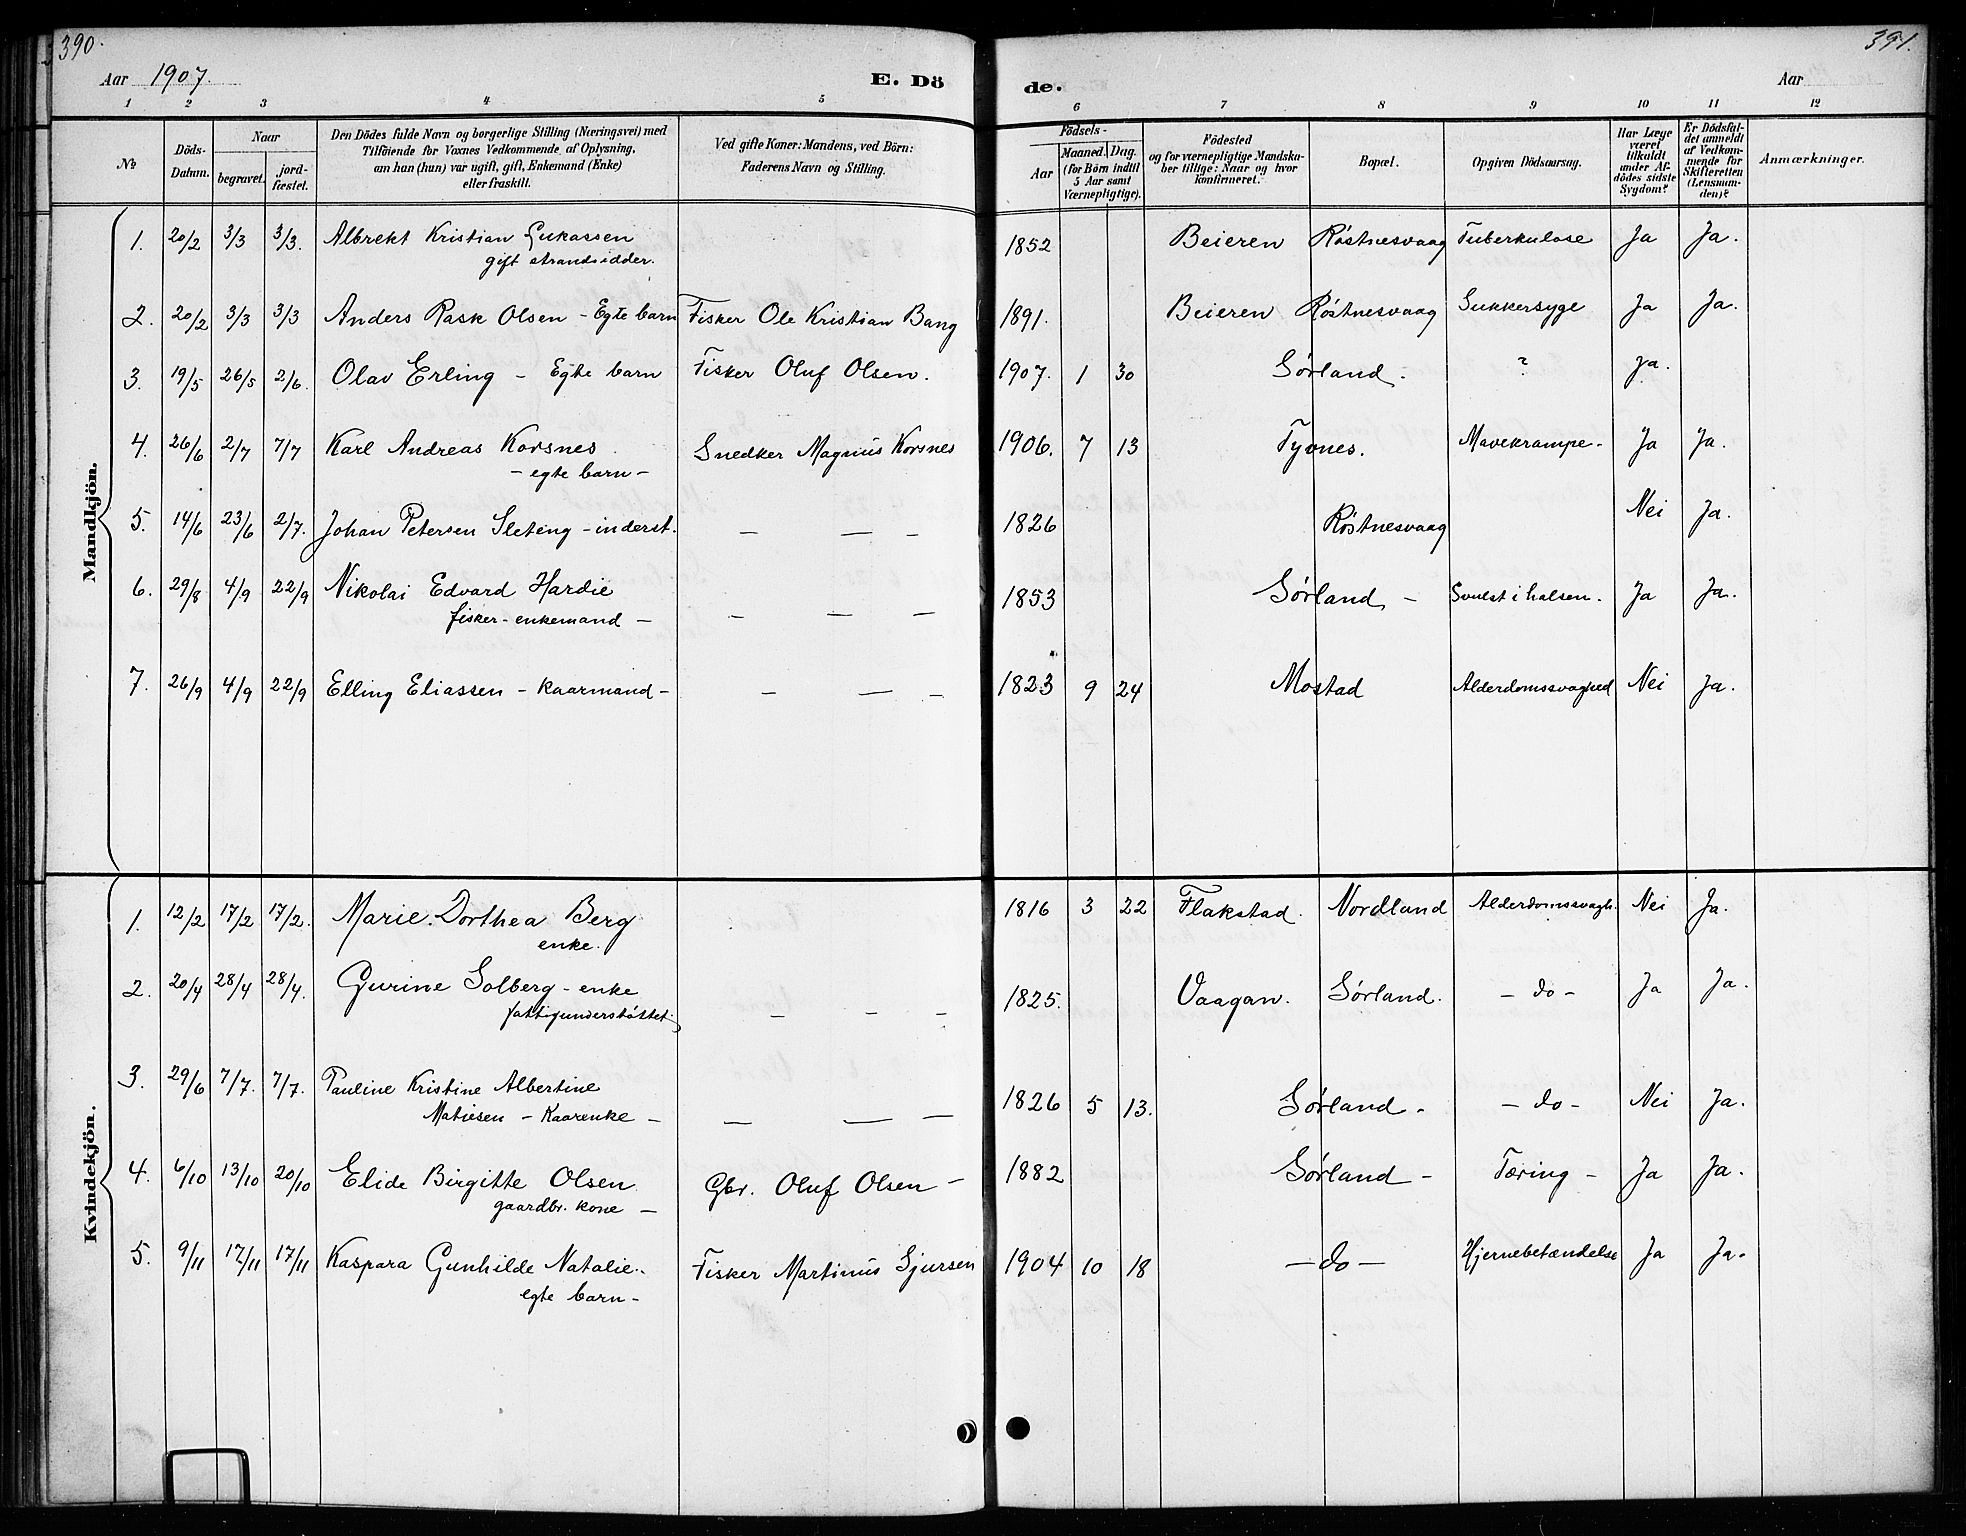 390.
391.
Aar 1907.
E. Dö
de.
Aar
1 2 3 4 5 6 7 8 9 10 11 12
No
Döds-Datum.
Naar
begravet.
jord-fæstet.
Den Dödes fulde Navn og borgerlige Stilling (Næringsvei) med
Tilföiende for Voxnes Vedkommende af Oplysning,
om han (hun) var ugift, gift, Enkemand (Enke)
eller fraskilt.
Ved gifte Koner: Mandens, ved Börn:
Faderens Navn og Stilling.
Födsels-
Aar
Maaned. Dag.
(for Börn indtil
5 Aar samt
Værnepligtige).
Födested
og for værnepligtige Mandska-
ber tillige: Naar og hvor
konfirmeret.
Bopæl.
Opgiven Dödsaarsag.
Har Læge
været
tilkaldt
under Af-
dödes sidste
Sygdom?
Er Dödsfal-
det anmeldt
af Vedkom-
mende for
Skifteretten
(Lensman-
den)?
Anmærkninger.
Mandkjön.
1. 20/2 3/3 3/3. Albrekt Kristian Lukassen 1852 Beieren Røstnesvaag Tuberkulose Ja Ja.
gift strandsidder.
2. 20/2 3/3 3/3 Anders Rask Olsen - Egte barn Fisker Ole Kristian Bang 1891. Beieren Røstnesvaag Sukkersyge Ja Ja.
3. 19/5 26/5 2/6. Olav Erling - Egte barn Fisker Oluf Olsen. 1907. 1 30 Sørland. ? Ja.
4. 26/6 2/7 7/7 Karl Andreas Korsnes Snedker Magnus Korsnes 1906. 7 13 Tyvnes. Mavekrampe- Ja Ja.
- egte barn -
5. 14/6 23/6 2/7. Johan Petersen Sleteng - inderst. — — — 1826 Røstnesvaag Nei Ja.
6. 29/8 4/9 22/9 Nikolai Edvard Hardie 1853 Sørland - Svulst i halsen. Ja Ja.
fisker - enkemand - — — —
7. 26/9 4/9 22/9 Elling Eliassen - kaarmand - — — — 1823 9 24 Mostad Alderdomssvaghed Nei Ja.
Kvindekjön.
1. 12/2 17/2 17/2. Marie Dorthea Berg 1816 3 22 Flakstad. Nordland Alderdomssvagh. Nei Ja.
enke.
2. 20/4 28/4 28/4. Gurine Solberg - enke 1825. Vaagan. Sørland. - do - Ja Ja.
fattigunderstøttet. — — —
3. 29/6 7/7. 7/7. Pauline Kristine Albertine 1826 5 13. Sørland - - do - Nei Ja.
Matiesen - Kaarenke - — — —
4. 6/10 13/10 20/10 Elide Birgitte Olsen Gbr. Oluf Olsen - 1882 Sørland - Tæring - Ja Ja.
gaardbr. kone -
5. 9/11 17/11 17/11 Kaspara Gunhilde Natalie. Fisker Martinus Sjursen 1904 10 18 - do - Hjernebetændelse Ja Ja.
egte barn -